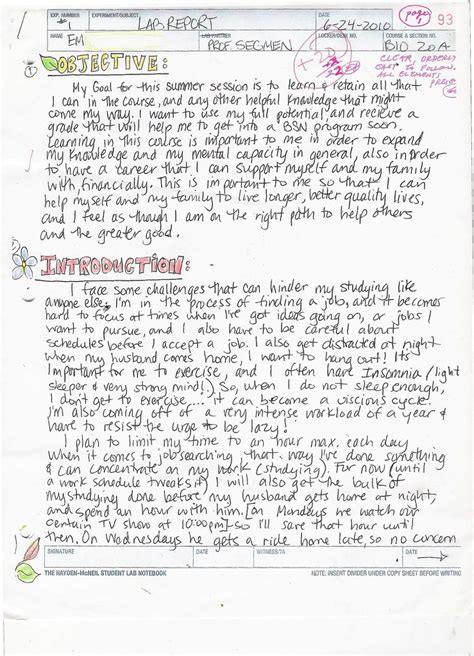 page 1
93
EXP. NUMBER
EXPERIMENT/SUBJECT
LAB REPORT
DATE
6-24-2010
NAME
EM
LAB PARTNER
PROF. SEGMEN
LOCKER/DESK NO.
COURSE & SECTION NO.
BIO 20A
+20
CLEAR, ORDERLY
EASY TO FOLLOW.
ALL ELEMENTS
1
OBJECTIVE:
My Goal for this summer session is to learn & retain all that
I can in the course, and any other helpful knowledge that might
come my way. I want to use my full potential and recieve a
grade that will help me to get into a BSN program soon.
Learning in this course is important to me in order to expand
my knowledge and my mental capacity in general, also in order
to have a career that I can support myself and my family
with, financially. This is important to me so that I can
help myself and my family to live longer, better quality lives,
and I feel as though I am on the right path to help others
and the greater good.
INTRODUCTION:
I face some challenges that can hinder my studying like
anyone else; I'm in the process of finding a job, and it becomes
hard to focus at times when I've got ideas going on, or jobs I
want to pursue, and I also have to be careful about
schedules before I accept a job. I also get distracted at night
when my husband comes home, I want to hang out! It's
important for me to exercise, and I often have Insomnia (light
sleeper & very strong mind!.) So, when I do not sleep enough,
I don't get to exercise.... it can become a viscious cycle.
I'm also coming off of a very intense workload of a year &
have to resist the urge to be lazy!
I plan to limit my time to an hour max. each day
when it comes to job searching, that way I've done something
& can concentrate on my work (studying). For now (until
a work schedule tweaks it) I will also get the bulk of
my studying done before my husband gets home at night,
and spend an hour with him. [on Mondays we watch our
certain TV show at 10:00pm] so I'll save that hour until
then. On Wednesdays he gets a ride home late, so no concern
SIGNATURE
DATE
WITNESS/TA
DATE
THE HAYDEN-McNEIL STUDENT LAB NOTEBOOK
NOTE: INSERT DIVIDER UNDER COPY SHEET BEFORE WRITING